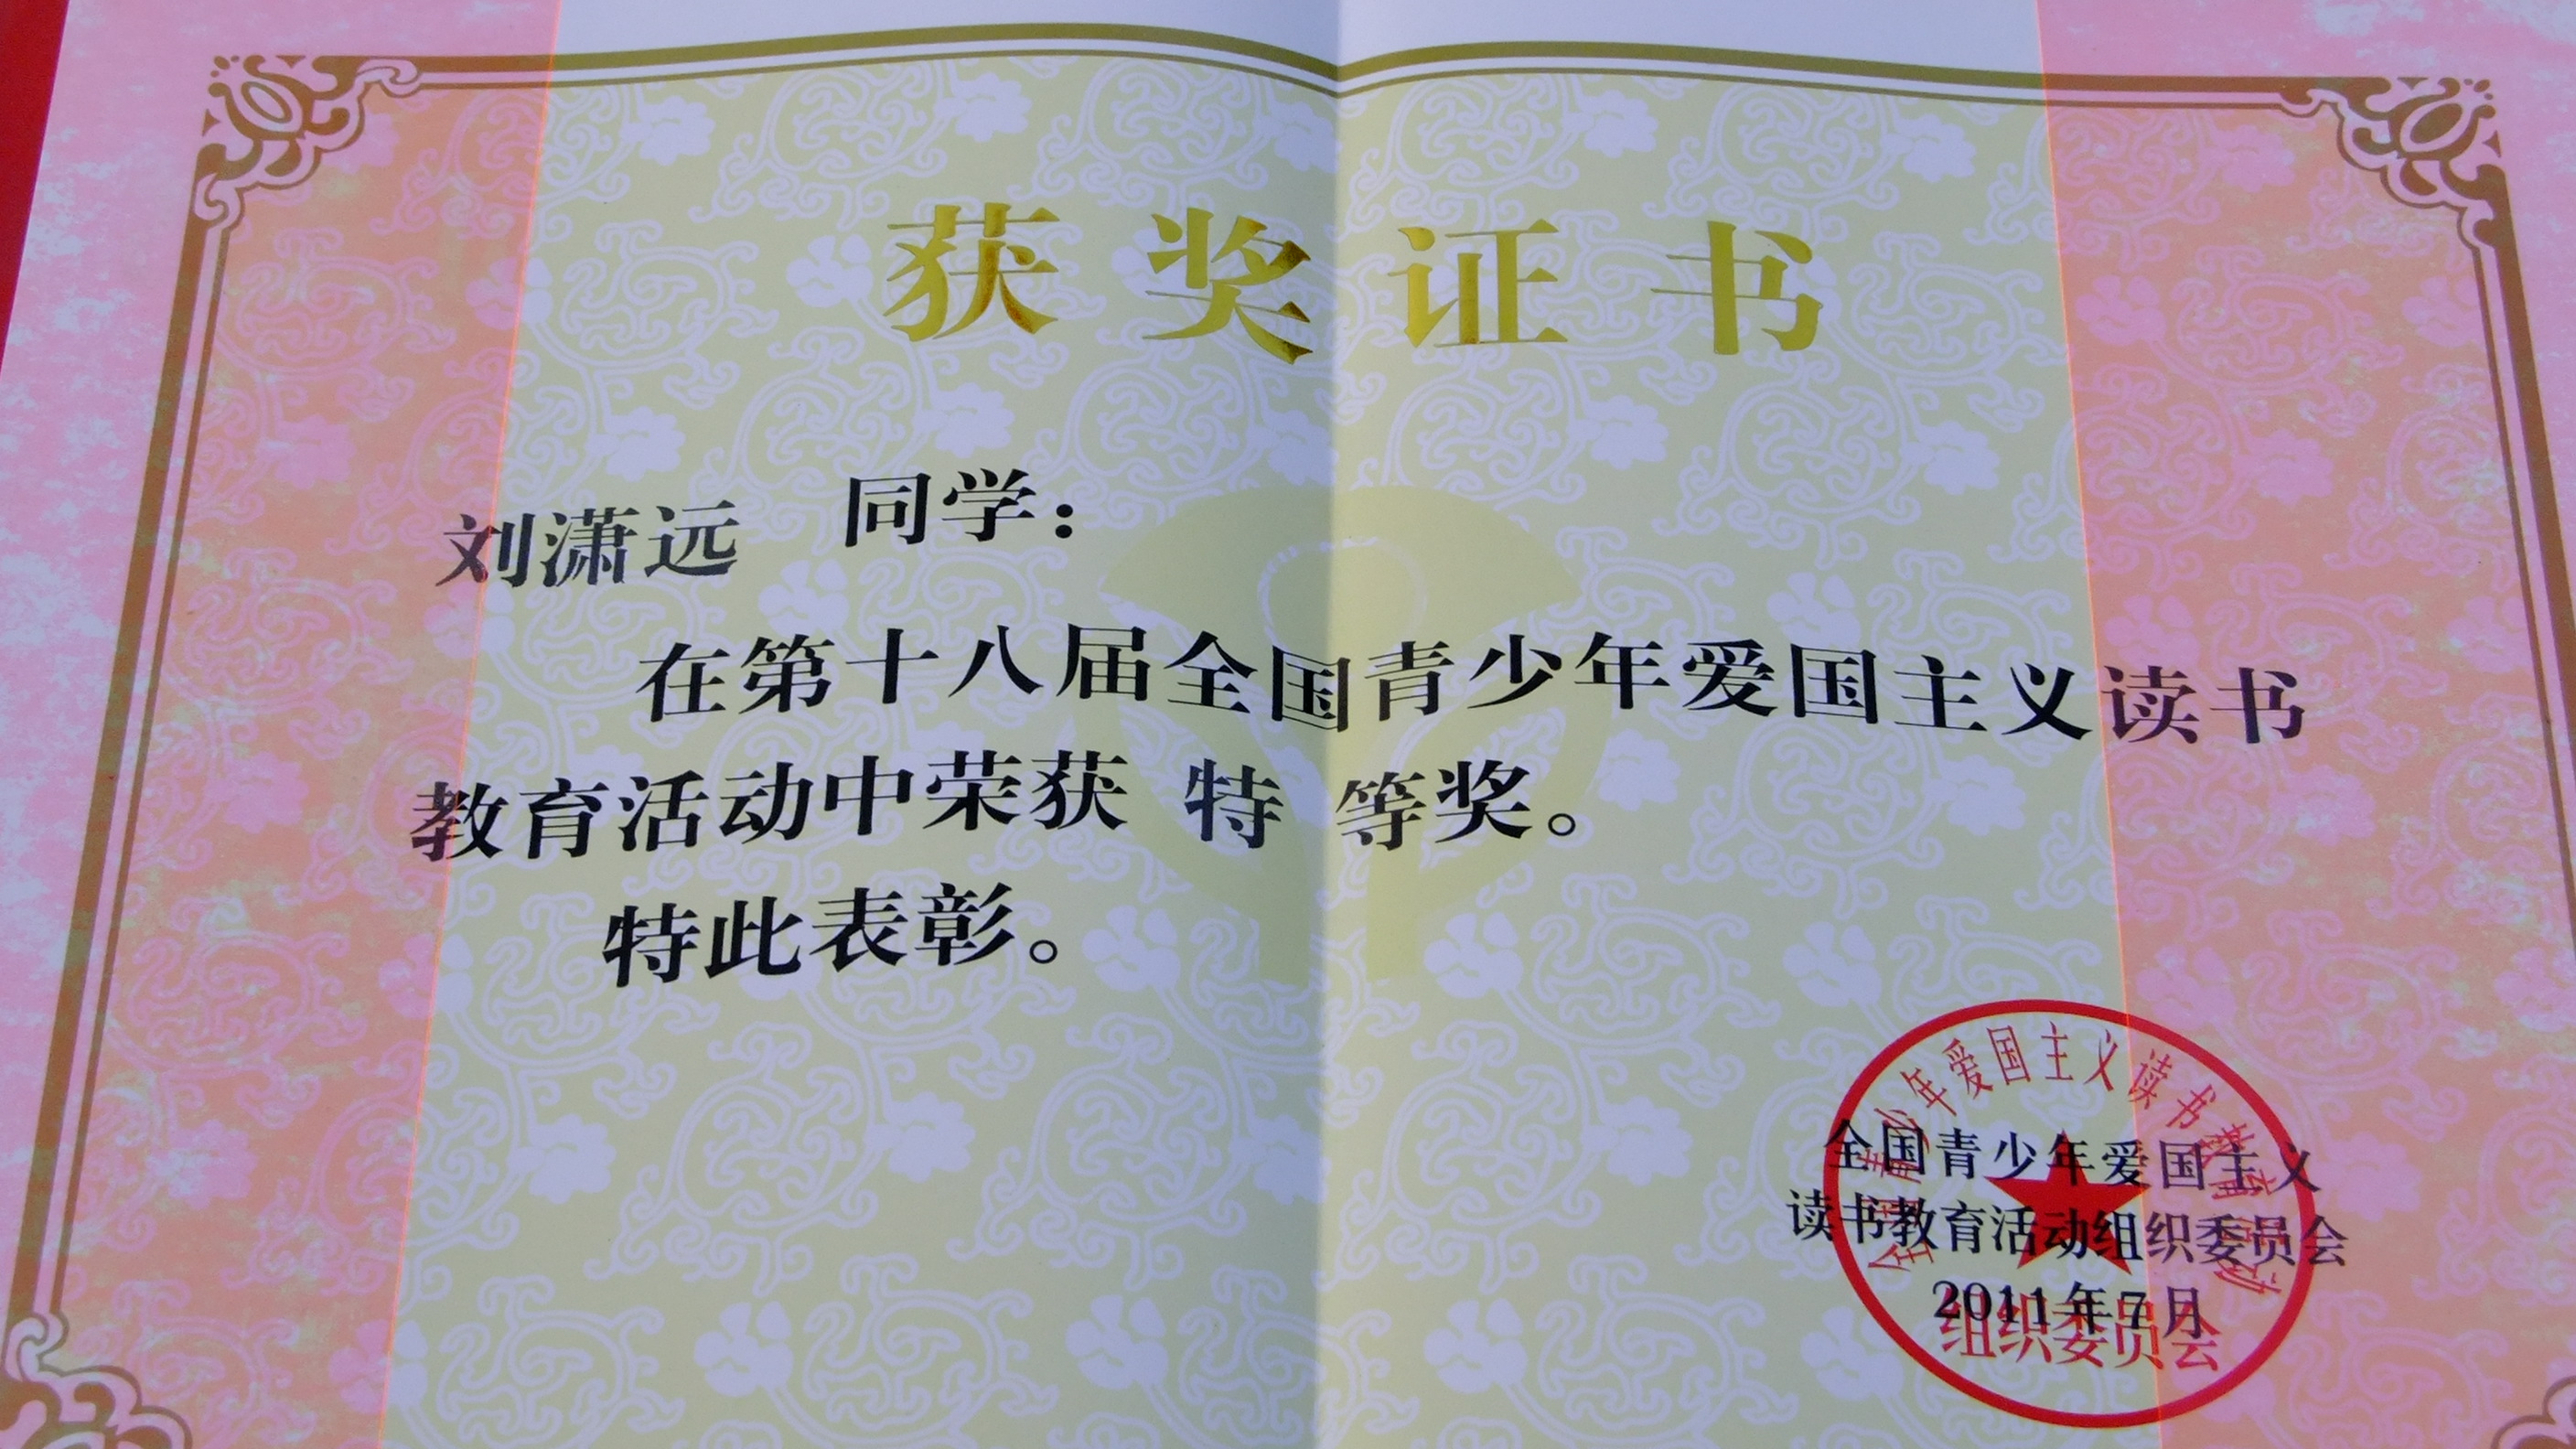 获奖证书
刘潇远 同学：
在第十八届全国青少年爱国主义读书
教育活动中荣获 特 等奖。
特此表彰。
全国青少年爱国主义
读书教育活动组织委员会
2011年7月
全国青少年爱国主义读书教育活动
组织委员会